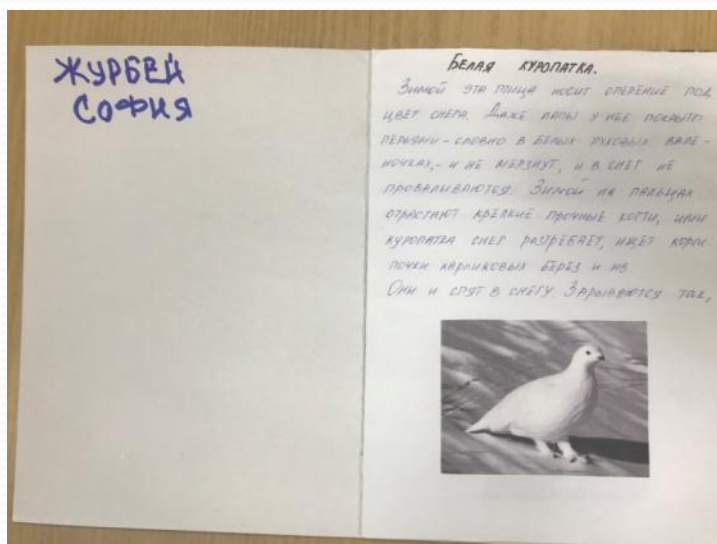 ЖУРБЕЙ
СОФИЯ
БЕЛАЯ КУРОПАТКА.
ЗИМОЙ ЭТА ПТИЦА НОСИТ ОПЕРЕНИЕ ПОД
ЦВЕТ СНЕГА. ДАЖЕ ЛАПЫ У НЕЕ ПОКРЫТЫ
ПЕРЬЯМИ - СЛОВНО В БЕЛЫХ ПУХОВЫХ ВАЛЕ-
НОЧКАХ, - И НЕ МЕРЗНУТ, И В СНЕГ НЕ
ПРОВАЛИВАЮТСЯ. ЗИМОЙ НА ПАЛЬЦАХ
ОТРАСТАЮТ КРЕПКИЕ ПРОЧНЫЕ КОГТИ, ИМИ
КУРОПАТКА СНЕГ РАЗГРЕБАЕТ, ИЩЕТ КОРМ
ПОЧКИ КАРЛИКОВЫХ БЕРЕЗ И ИВ.
ОНИ И СПЯТ В СНЕГУ. ЗАРЫВАЮТСЯ ТАК,